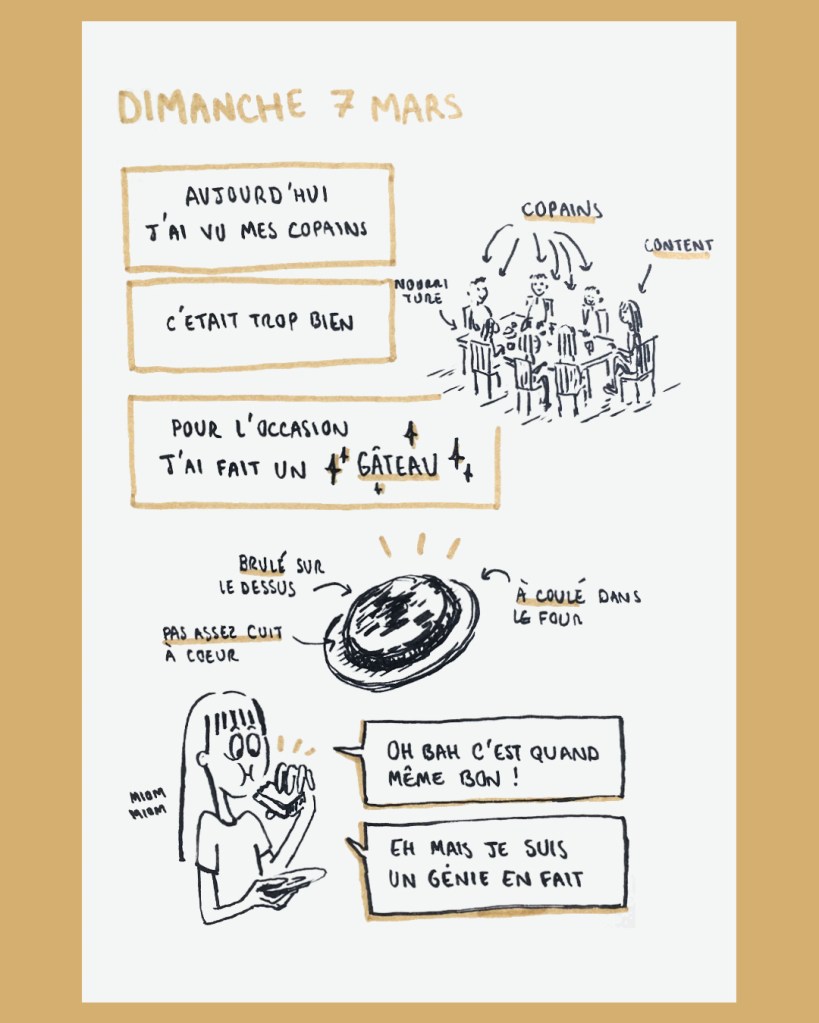 DIMANCHE 7 MARS
AUJOURD'HUI
J'AI VU MES COPAINS
COPAINS
CONTENT
NOURRI
TURE
C'ETAIT TROP BIEN
POUR L'OCCASION
J'AI FAIT UN GÂTEAU
BRULÉ SUR
LE DESSUS
À COULÉ DANS
LE FOUR
PAS ASSEZ CUIT
À COEUR
MIOM
MIOM
OH BAH C'EST QUAND
MÊME BON !
EH MAIS JE SUIS
UN GÉNIE EN FAIT